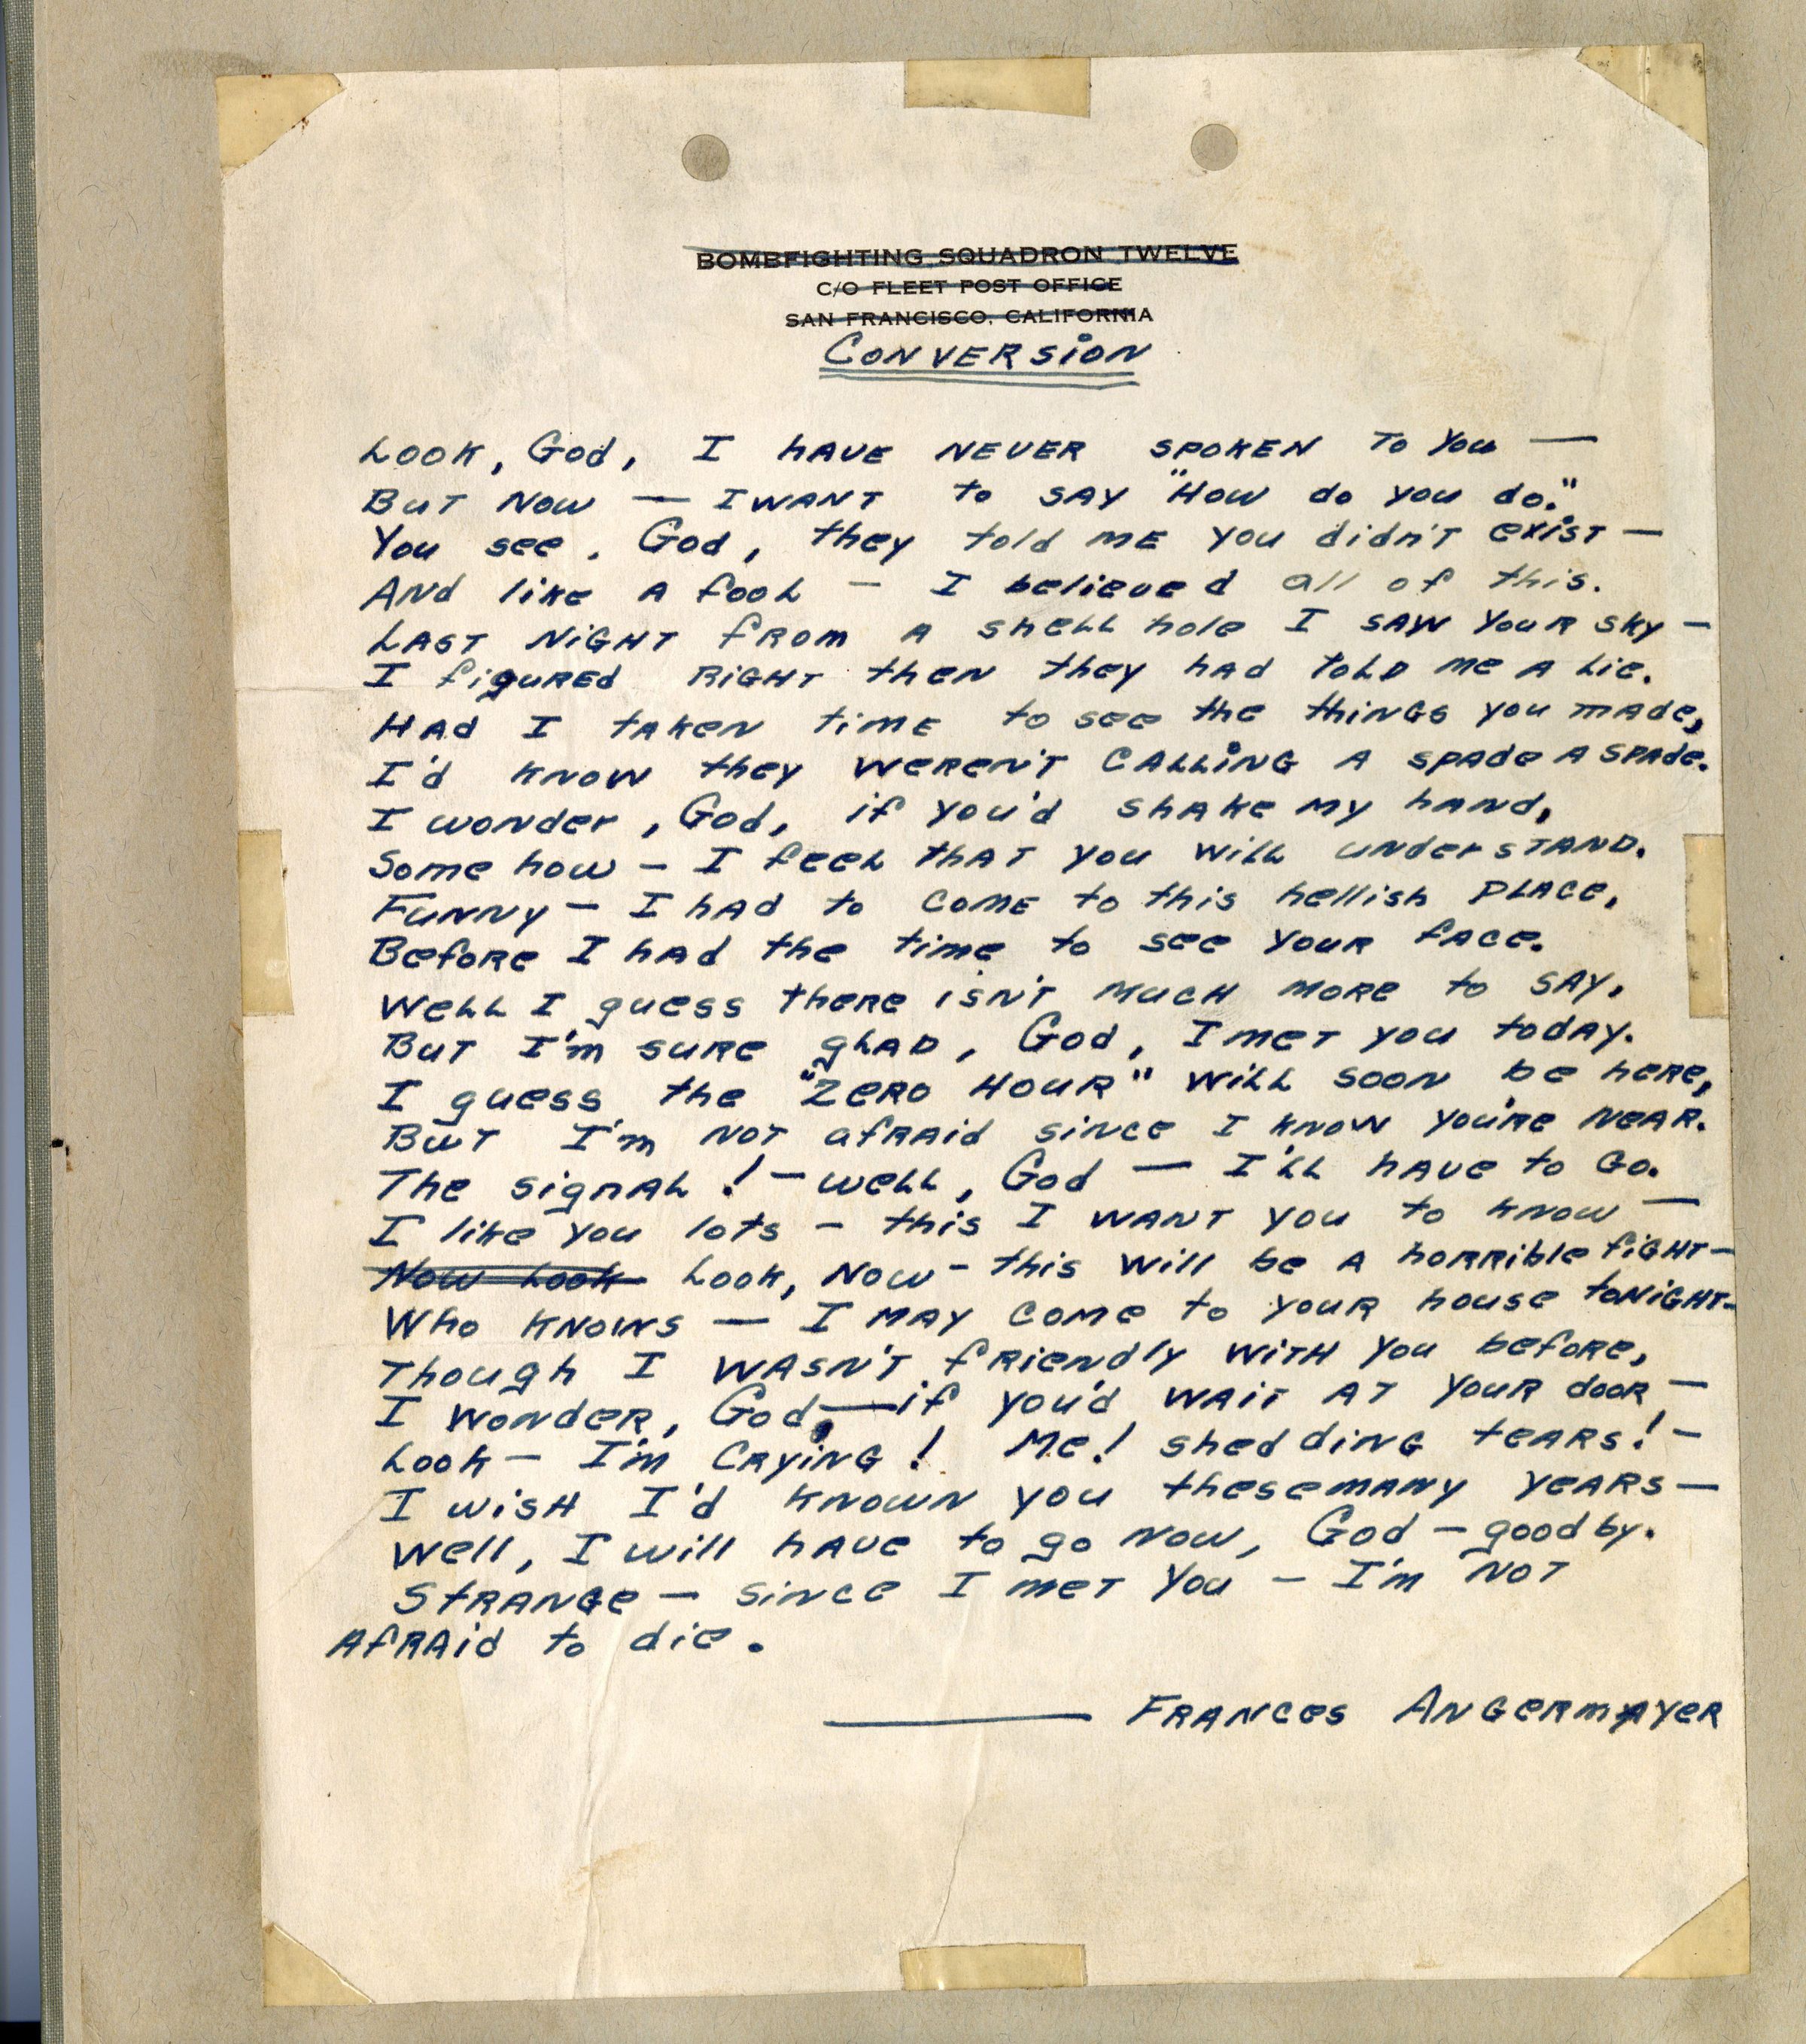 BOMBFIGHTING SQUADRON TWELVE
C/O FLEET POST OFFICE
SAN FRANCISCO, CALIFORNIA
Conversion
Look, God, I have never spoken to you —
But now — I want to say "How do you do."
You see, God, they told me you didn't exist —
And like a fool — I believed all of this.
Last night from a shell hole I saw your sky —
I figured right then they had told me a lie.
Had I taken time to see the things you made,
I'd know they weren't calling a spade a spade.
I wonder, God, if you'd shake my hand,
Some how — I feel that you will understand.
Funny — I had to come to this hellish place,
Before I had the time to see your face.
Well I guess there isn't much more to say,
But I'm sure glad, God, I met you today.
I guess the "zero hour" will soon be here,
But I'm not afraid since I know you're near.
The signal! — well, God — I'll have to go.
I like you lots — this I want you to know —
Now Look Look, now — this will be a horrible fight —
Who knows — I may come to your house tonight —
Though I wasn't friendly with you before,
I wonder, God — if you'd wait at your door —
Look — I'm crying! Me! shedding tears! —
I wish I'd known you these many years —
Well, I will have to go now, God — good by.
Strange — since I met you — I'm not
afraid to die.
— Frances Angermayer